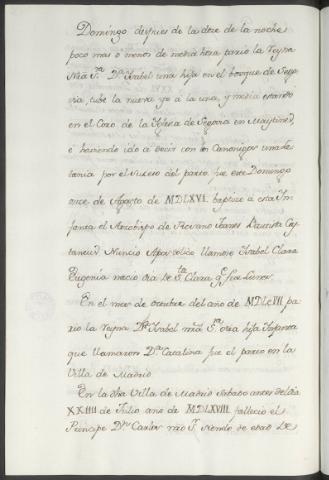 Domingo despues de la doze de la noche
poco mas o menos de media hora pario la Reyna
Nrã Sra. Dª Isabel una hija en el bosque de Sego
via, tube la nueva yo a la una, y media estando
en el Coro de la Iglesia de Segovia en Maytines,
e haviendo ido a decir con los Canonigos una le
tania por el suceso del parto, fue este Domingo
once de Agosto de MDLXVI. baptizo a esta In
fanta el Arzobispo de Rosano Joanes Bautista Cas
taneus Nuncio Apostolico llamose Isabel Clara
Eugenia nacio dia de Sta. Clara q.e fue Lunes.
En el mes de octubre del año de MDLXVII pa
rio la Reyna Dª Isabel nrã Sª otra hija Infanta
que llamaron Dª Catalina fue el parto en la
Villa de Madrid
En la dha Villa de Madrid Sabado antes del dia
XXIIII de Julio año de MDLXVIII. fallecio el
Principe Dn Carlos nrõ Sr. siendo de edad de